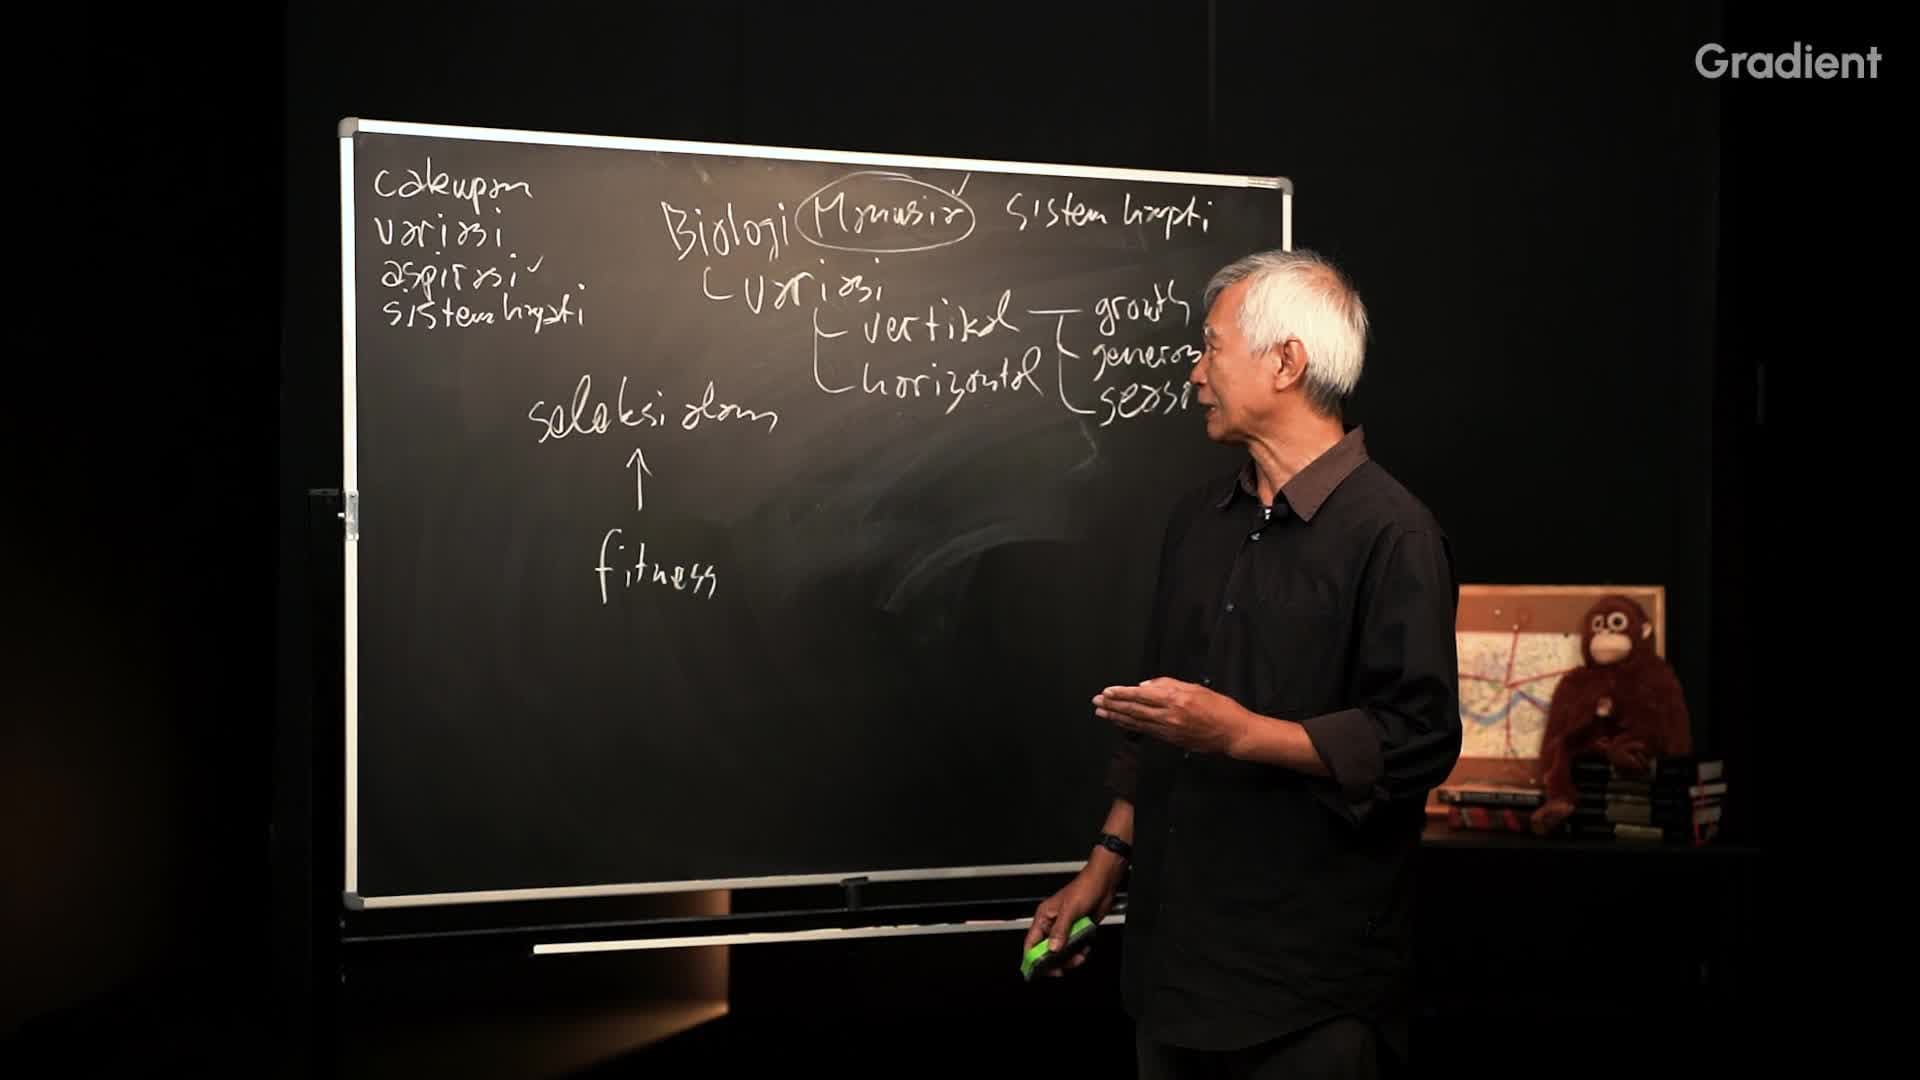 Gradient
cakupan
variasi
aspirasi ✓
sistem hayati
Biologi Manusia ✓ sistem hayati
variasi
vertikal
horizontal
growth
seleksi alam
↑
fitness